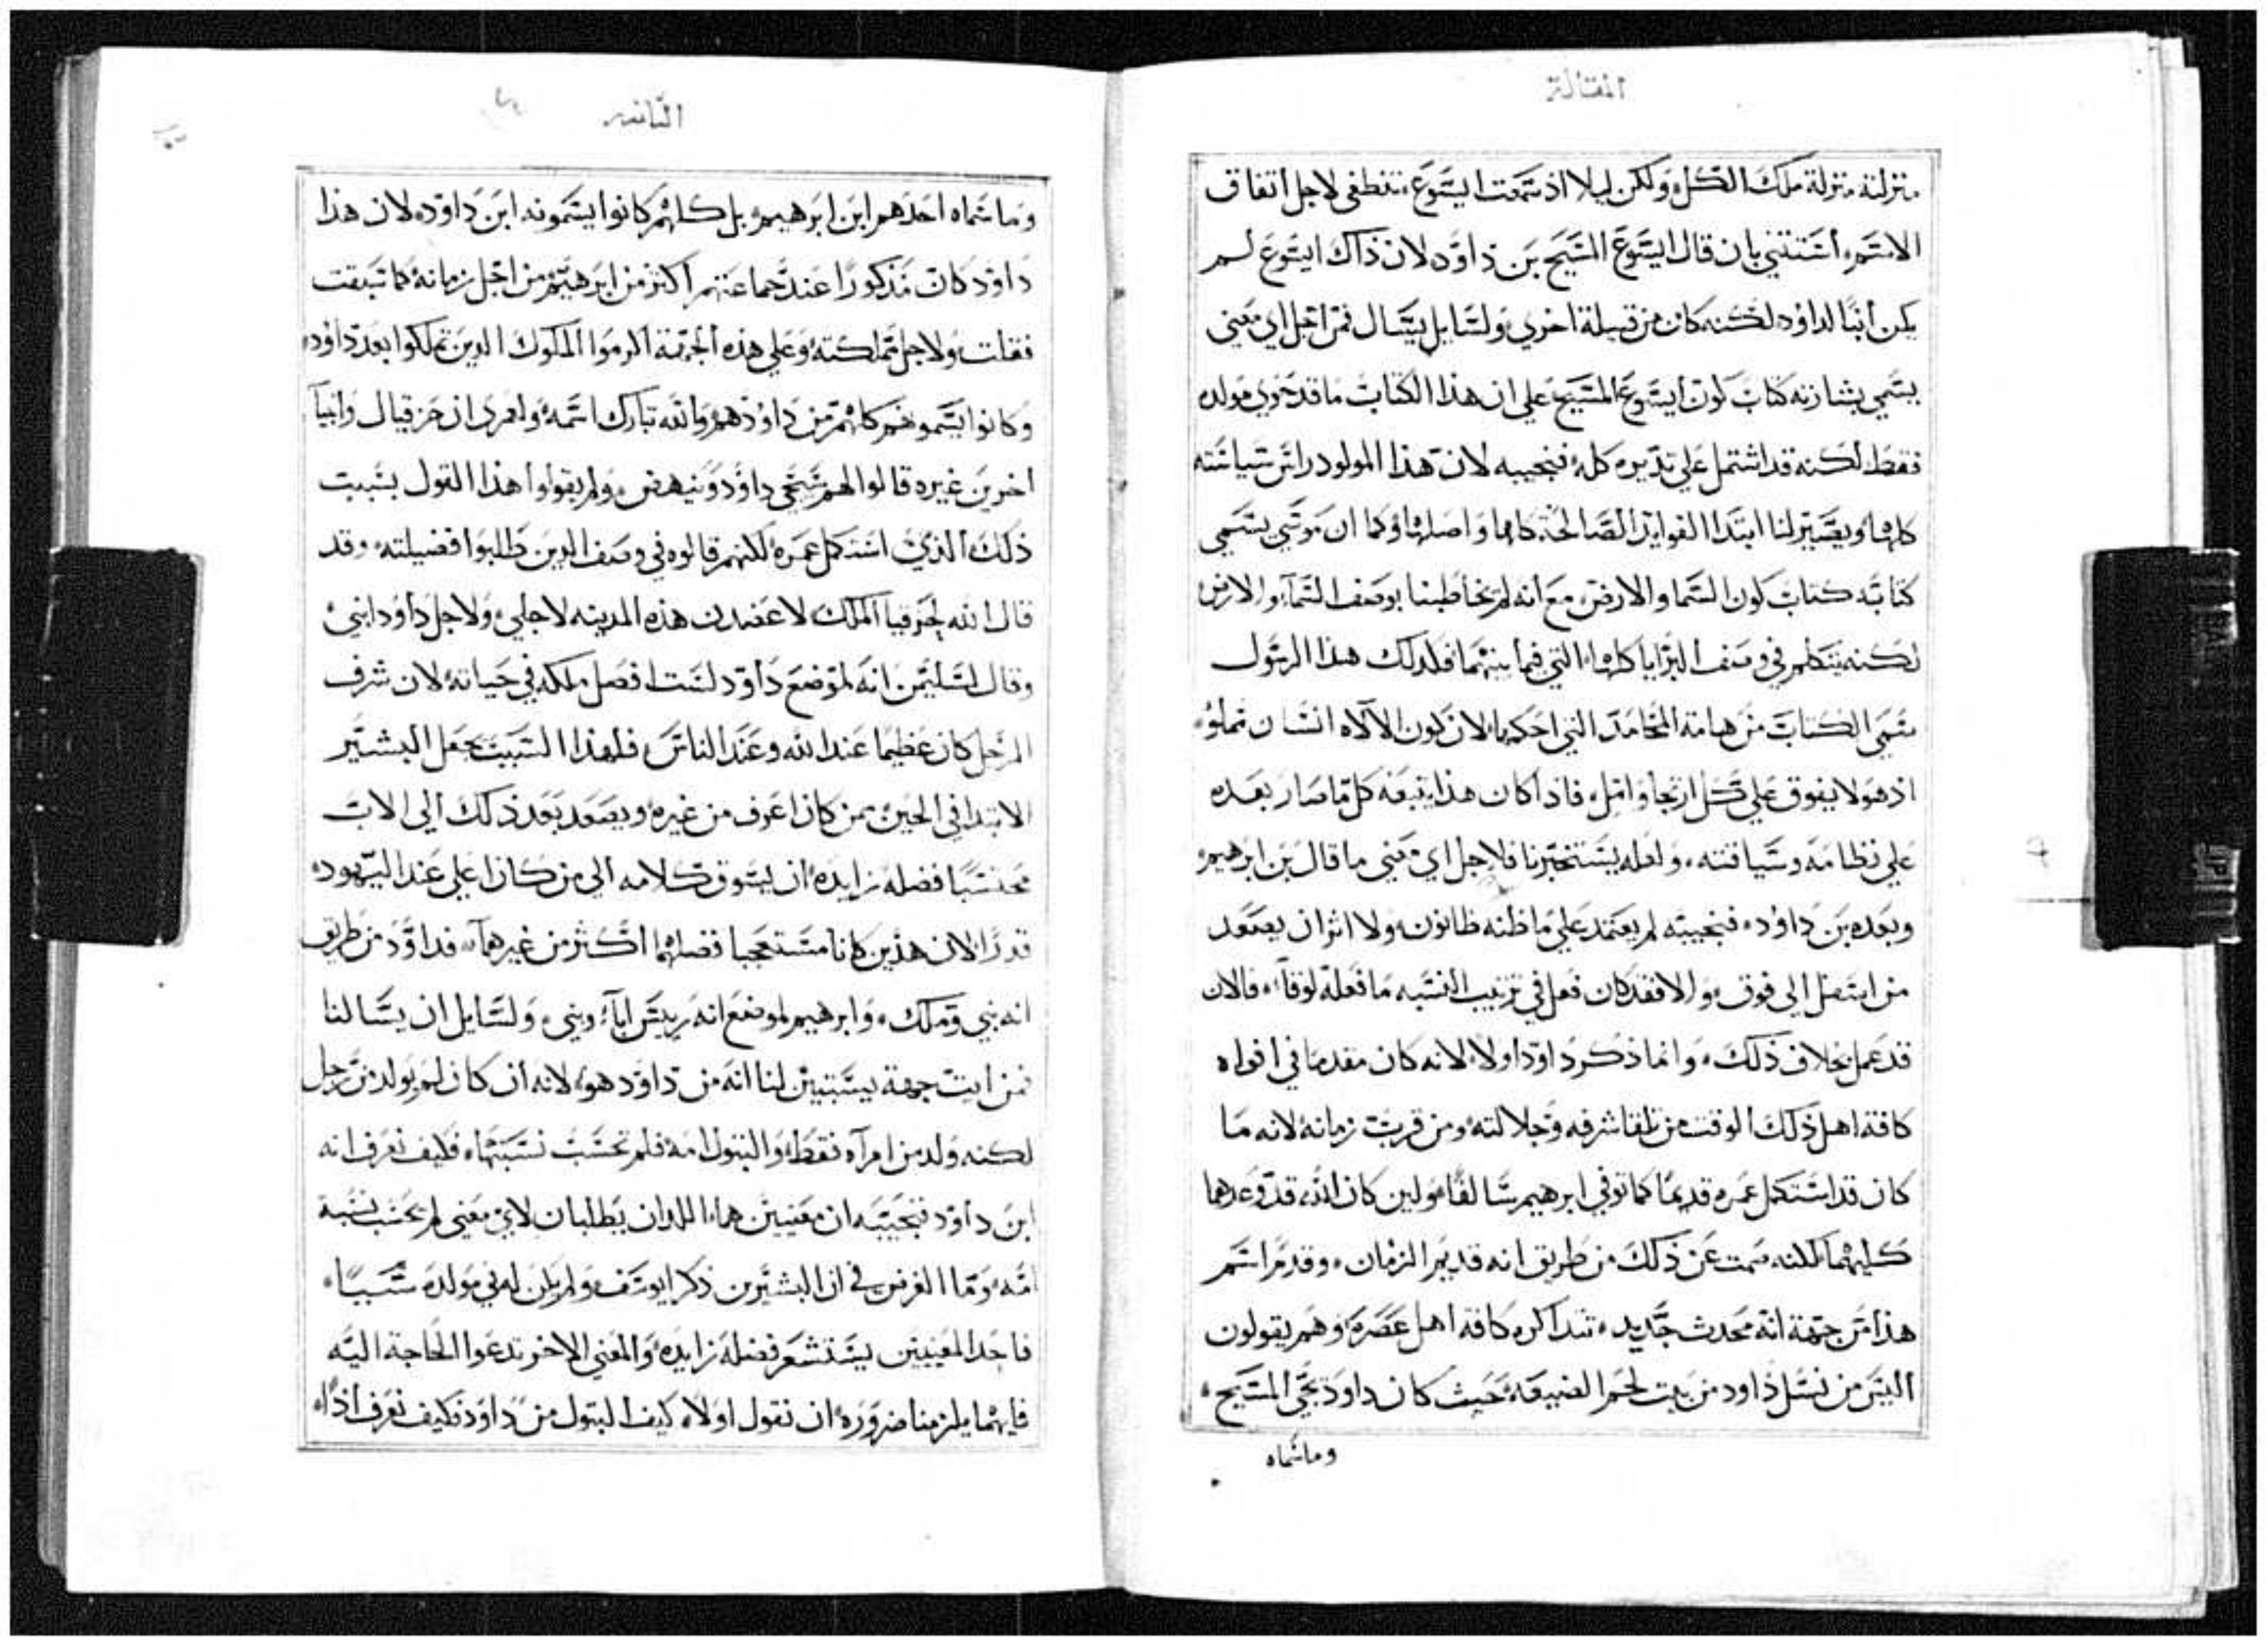 المقالة
منزلته منزلة ملك الكل، ولكن ليلا اذ سمعت ايسوع، تنطغي لاجل اتفاق
الاسم، استثنني بان قال ايسوع المسيح بن داود، لان ذاك ايسوع لم
يكن ابنًا لداود، لكنه كان من قبيلة اخري، ولسايل يسال فمن اجل اي معني
يسمي بشارته كتاب كون ايسوع المسيح، علي ان هذا الكتاب ما قد حوي مولده
فقط، لكنه قد اشتمل علي تدبيره كله، فنجيبه لان هذا المولود راس سياسته
كلها، ويصير لنا ابتدا الفوايد الصالحة كلها واصلها، وكما ان موسي يسمي
كتابه كتاب كون السما والارض، مع انه لم يخاطبنا بوصف السمآ والارض
لكنه يتكلم في وصف البرايا كلها، التي فيما بينهما، فلذلك هذا الرسول
سمي الكتاب من هامة المحامد التي احكمها، لان كون الالاه انسان مملوء
اذ هولا يفوق علي كل ارتجا وامل، فاذا كان هذا يتبعه كل ما صار بعده
علي نظامه وسياقته، ولعله يستخبرنا فلاجل اي معني ما قال بن ابرهيم،
وبعده بن داود، فنجيبه لم يعتمد علي ما ظنه ظانون، ولا اثر ان يصعد
من اسفل الي فوق، والا فقد كان فعل في ترتيب النسبه ما فعله لوقا، فالان
قد عمل بخلاف ذلك، وانما ذكر داود اولا، لانه كان مقدما في افواه
كافة اهل ذلك الوقت، من تلقا شرفه وجلالته، ومن قرب زمانه، لانه ما
كان قد استكمل عمره قديمًا كما توفي ابرهيم سالفًا، ولين كان الله، قد وعدهما
كليهما، لكنه صمت عن ذلك من طريق انه قديم الزمان، وقدم اسم
هذا من جهة انه محدث جديد، تتداكره كافة اهل عصره، وهم يقولون
اليس من نسل داود من بيت لحم الضيعه، حيث كان داود يجي المسيح،
وماسماه
الثانيه
وما سماه احدهم ابن ابرهيم، بل كلهم كانوا يسمونه ابن داود، لان هذا
داود كان مذكورًا عند جماعتهم اكثر من ابرهيم، من اجل زمانه، كما سبقت
فقلت، ولاجل مملكته، وعلي هذه الجهة اكرموا الملوك الدين تملكوا بعد داود،
وكانوا يسمونهم كلهم من داود، هم والله تبارك اسمه، ولعمري ان حزقيال وانبيآ
اخرين غيره قالوا لهم سيجي داود وينهض، ولم يقولوا هذا القول بسبب
ذلك الذي استكمل عمره، لكنهم قالوه في وصف الدين طلبوا فضيلته، وقد
قال الله لحزقيا الملك لاعضدن هذه المدينه لاجلي، ولاجل داود ابني،
وقال لسليمن انه لموضع داود لست افصل ملكه في حياته، لان شرف
الرجل كان عظيمًا عند الله وعند الناس، فلهذا السبب جعل البشير
الابتدا في الحين، بمن كان اعرف من غيره، ويصعد بعد ذلك الي الاب
محتسبًا فضله زايده، ان يسوق كلامه الي من كان اعلي عند اليهود،
قدرًا، لان هذين كانا مستعجبا فضلهما اكثر من غيرهما، فداود من طريق
انه نبي وملك، وابرهيم لموضع انه رييس ابآء ونبي، ولسايل ان يسالنا
فمن ايت جهة يستبين لنا انه من داود هو، لانه ان كان لم يولد من رجل
لكنه ولد من امرآه فقط، والبتول امه فلم تحسب نسبتها، فكيف نعرف انه
ابن داود، فنجيبه ان معنيين هما، اللدان يطلبان، لاي معني لم تحسب نسبة
امه، وما الغرض في ان البشير من ذكر ايوسف، ولم يكن له في مولده سببًا،
فاحد المعنيين يستشعر فضله زايده، والمعني الاخر تدعوا الحاجة اليه
فايهما يلزمنا ضروره، ان نقول اولا، كيف البتول من داود، فكيف نعرف اذًا،